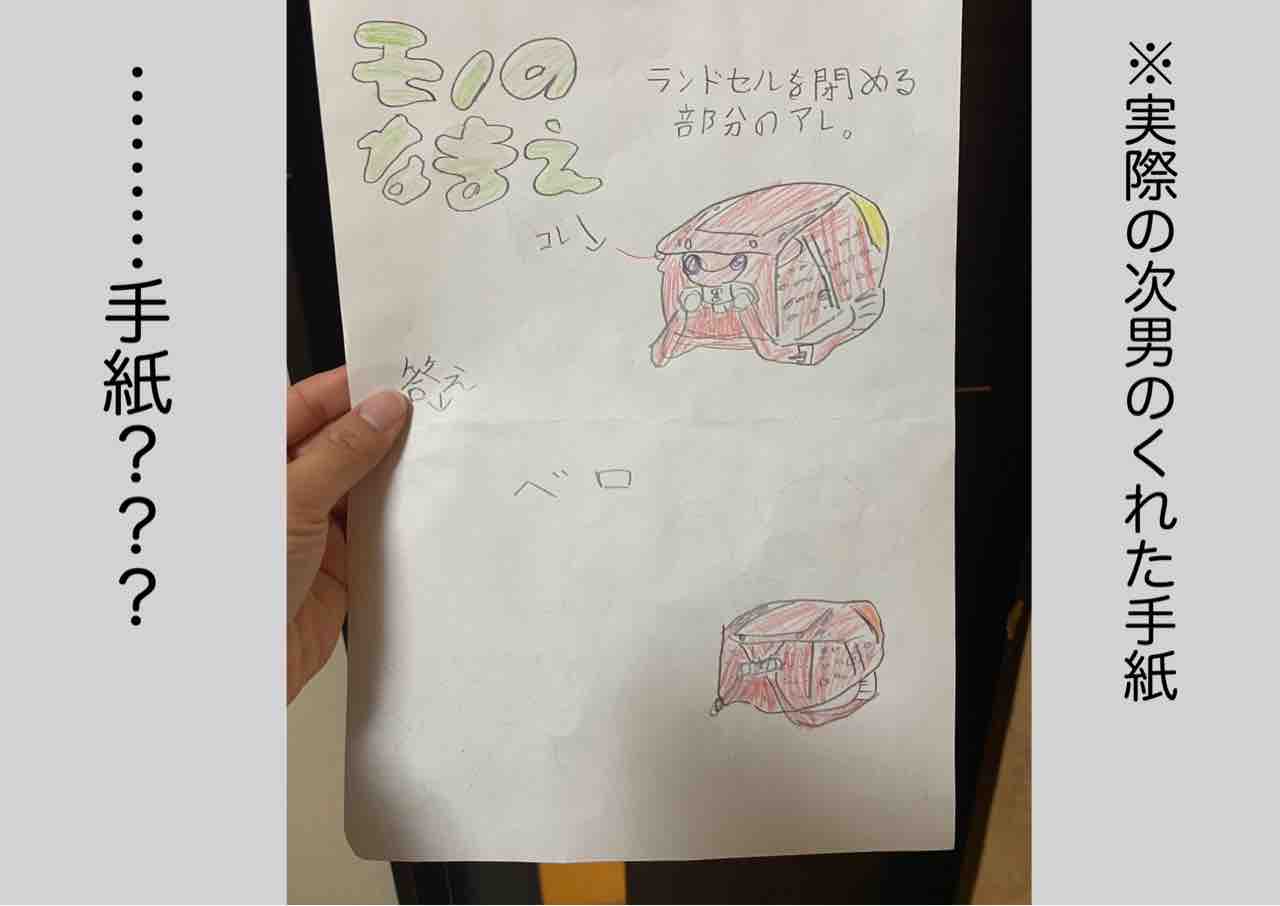 ※実際の次男のくれた手紙
モノの
なまえ
ランドセルを閉める
部分のアレ。
コレ↘
答え
↓
ベロ
………手紙？？？